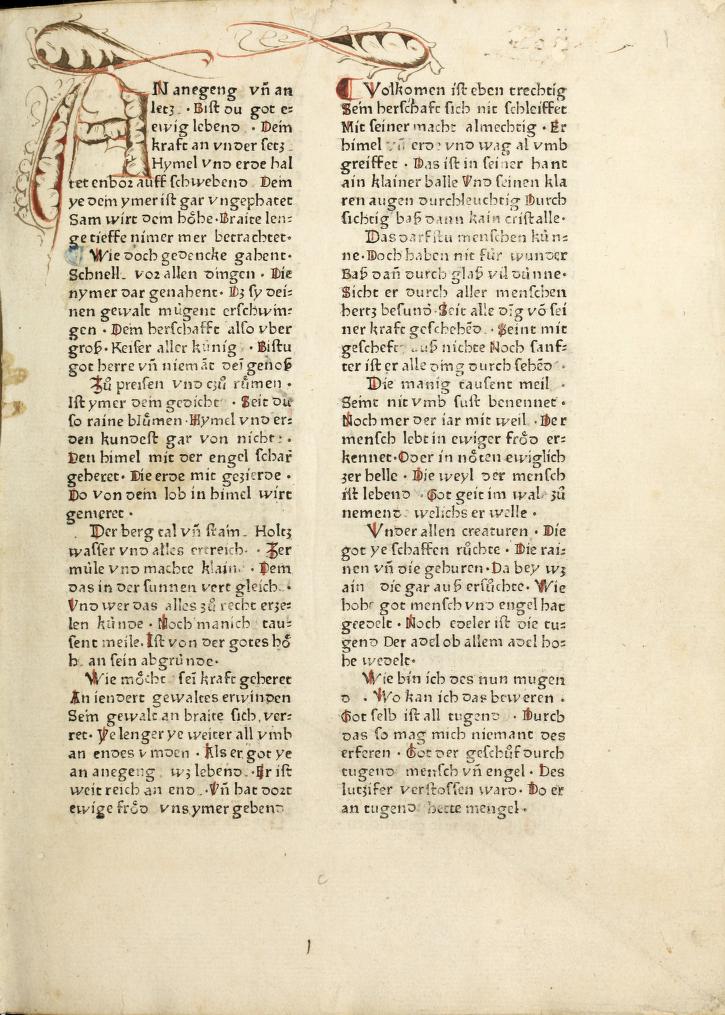 AN anegeng vñ an
letz · Bist du got e⸗
ewig lebend · Dem
kraft an vnder setz ·
Hymel vnd erde hal
tet enbor auff schwebend Dem
ye dem ymer ist gar vngephatet
Sam wirt dem hőhe · Braite len⸗
ge tieffe nimer mer betrachtet ·
Wie doch gedencke gahent ·
Schnell vor allen dingen · Die
nymer dar genahent · Dz sy dei⸗
nen gewalt mugent erschwin⸗
gen · Dem herschafft also vber
groß · Keiser aller kůnig · Bistu
got herre vñ niemāt deī genoß
Zů preisen vnd czů růmen ·
Ist ymer dem gedicht · Seit du
so raine blůmen · Hymel vnd er⸗
den kundest gar von nicht ·
Den himel mit der engel schar
geheret · Die erde mit gezierde ·
Do von dem lob in himel wirt
gemeret ·
Der berg tal vñ stain Holtz
wasser vnd alles ertreich · Zer
můle vnd machte klain · Dem
das in der sunnen vert gleich ·
Vnd wer das alles zů recht erze⸗
len kůnde · Noch manich tau⸗
sent meile · Ist von der gotes hő
h an sein abgrůnde ·
Wie mőcht seī kraft geheret
An iendert gewaltes erwinden
Sein gewalt an braite sich ver⸗
ret · Ye lenger ye weiter all vmb
an endes vinden · Als er got ye
an anegeng wz lebend · Er ist
weit reich an end · Vñ hat dort
ewige frőd vns ymer gebend
Volkomen ist eben trechtig
Sein herschaft sich nit schleiffet
Mit seiner macht almechtig · Er
himel vñ erde vnd wag al vmb
greiffet · Das ist in seiner hant
ain klainer balle Vnd seinen kla
ren augen durchleuchtig Durch
sichtig baß dann kain cristalle ·
Das darfstu menschen kůn⸗
ne · Doch haben nit für wunder
Baß dañ durch glaß vil dünne ·
Sicht er durch aller menschen
hertz besund · Seit alle dīg vō sei
ner kraft geschehēd · Seint mit
gescheft auß nichte Noch sanf⸗
ter ist er alle ding durch sehēd ·
Die manig tausent meil ·
Seint nit vmb sust benennet ·
Noch mer der iar mit weil · Der
mensch lebt in ewiger frőd er⸗
kennet · Oder in nőten ewiglich
zer helle · Die weyl der mensch
ist lebend · Got geit im wal zů
nemend welichs er welle ·
Vnder allen creaturen · Die
got ye schaffen růchte · Die rai⸗
nen vñ die gehuren · Da bey wz
ain die gar auß ersůchte · Wie
hohe got mensch vnd engel hat
geedelt · Noch edeler ist die tu⸗
gend Der adel ob allem adel ho⸗
he wedelt ·
Wie bin ich des nun mugen
d · Wo kan ich das beweren ·
Got selb ist all tugend · Durch
das so mag mich niemant des
erferen · Got der geschůf durch
tugend mensch vñ engel · Des
lutzifer verstossen ward · Do er
an tugend hette mengel ·
1